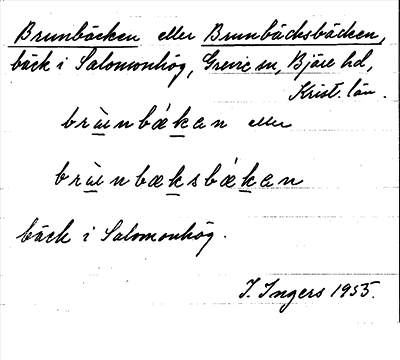 Brunbäcken eller Brunbäcksbäcken,
bäck i Salomonhög, Grevie sn, Bjäre hd,
Krist. län.
brùnbǽkan eller
brùnbæksbǽkan
bäck i Salomonhög.
I. Ingers 1955.